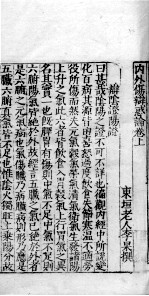 內外傷辯惑論卷上
東垣老人李杲撰
辯陰證陽證
曰甚哉陰陽之證不可不詳也徧觀內經中所說變
化百病其源皆由喜怒過度飲食失節寒溫不適勞
役所傷而然夫元氣穀氣榮氣清氣衛氣生發諸陽
上升之氣此六者皆飲食入胃穀氣上行胃氣之異
名其實一也旣脾胃有傷則中氣不足中氣不足則
六腑陽氣皆絕於外故經言五臟之氣已絕於外者
是六腑之元氣病也氣傷臟乃病臟病則形乃應是
五臟六腑眞氣皆不足也惟陰火獨旺上乘陽分故